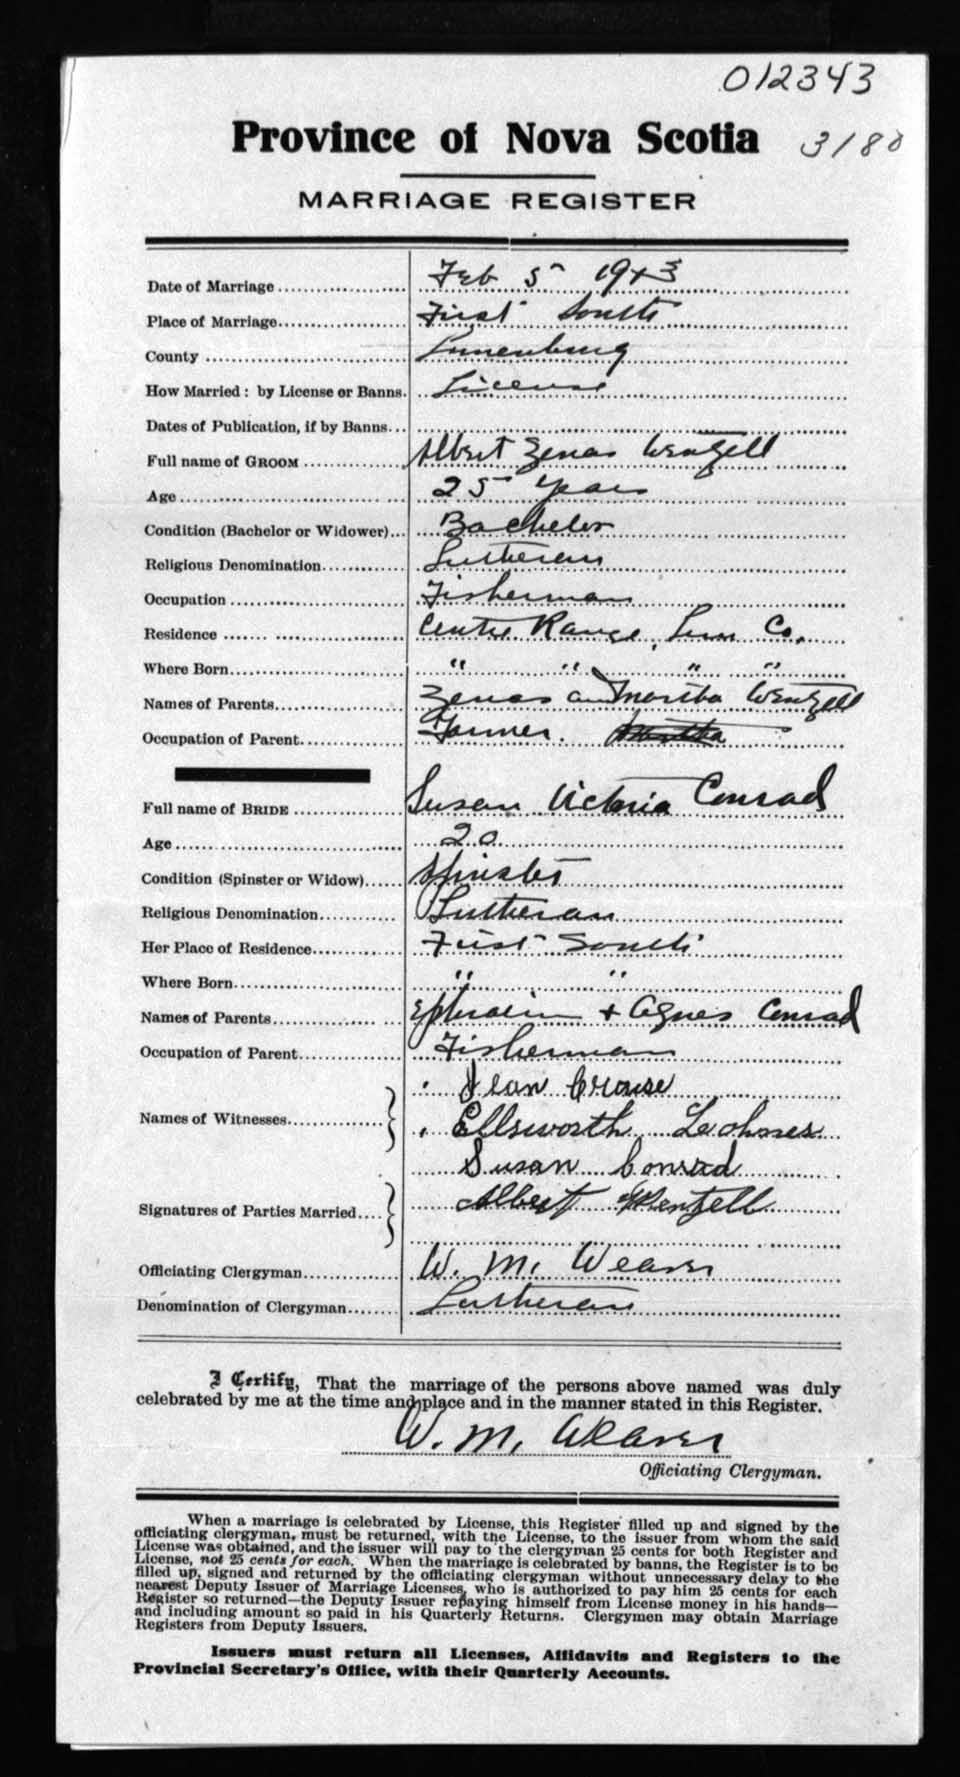 012343
Province of Nova Scotia 3180
MARRIAGE REGISTER
Date of Marriage Feb 5 1943
Place of Marriage First South
County Lunenburg
How Married: by License or Banns. License
Dates of Publication, if by Banns
Full name of GROOM Albert Zenas Wentzell
Age 25 years
Condition (Bachelor or Widower) Bachelor
Religious Denomination Lutheran
Occupation Fisherman
Residence Centre Range, Lun Co.
Where Born " " " "
Names of Parents Zenas and Martha Wentzell
Occupation of Parent Farmer. Martha
Full name of BRIDE Susan Victoria Conrad
Age 20
Condition (Spinster or Widow) Spinster
Religious Denomination Lutheran
Her Place of Residence First South
Where Born " "
Names of Parents Ephraim + Agnes Conrad
Occupation of Parent Fisherman
Jean Crouse
Names of Witnesses Ellsworth Lohnes
Susan Conrad
Signatures of Parties Married Albert Wentzell
Officiating Clergyman W. M. Weaver
Denomination of Clergyman Lutheran
I Certify, That the marriage of the persons above named was duly
celebrated by me at the time and place and in the manner stated in this Register.
W. M. Weaver
Officiating Clergyman.
When a marriage is celebrated by License, this Register filled up and signed by the
officiating clergyman, must be returned, with the License, to the issuer from whom the said
License was obtained, and the issuer will pay to the clergyman 25 cents for both Register and
License, not 25 cents for each. When the marriage is celebrated by banns, the Register is to be
filled up, signed and returned by the officiating clergyman without unnecessary delay to the
nearest Deputy Issuer of Marriage Licenses, who is authorized to pay him 25 cents for each
Register so returned—the Deputy Issuer repaying himself from License money in his hands—
and including amount so paid in his Quarterly Returns. Clergymen may obtain Marriage
Registers from Deputy Issuers.
Issuers must return all Licenses, Affidavits and Registers to the
Provincial Secretary's Office, with their Quarterly Accounts.